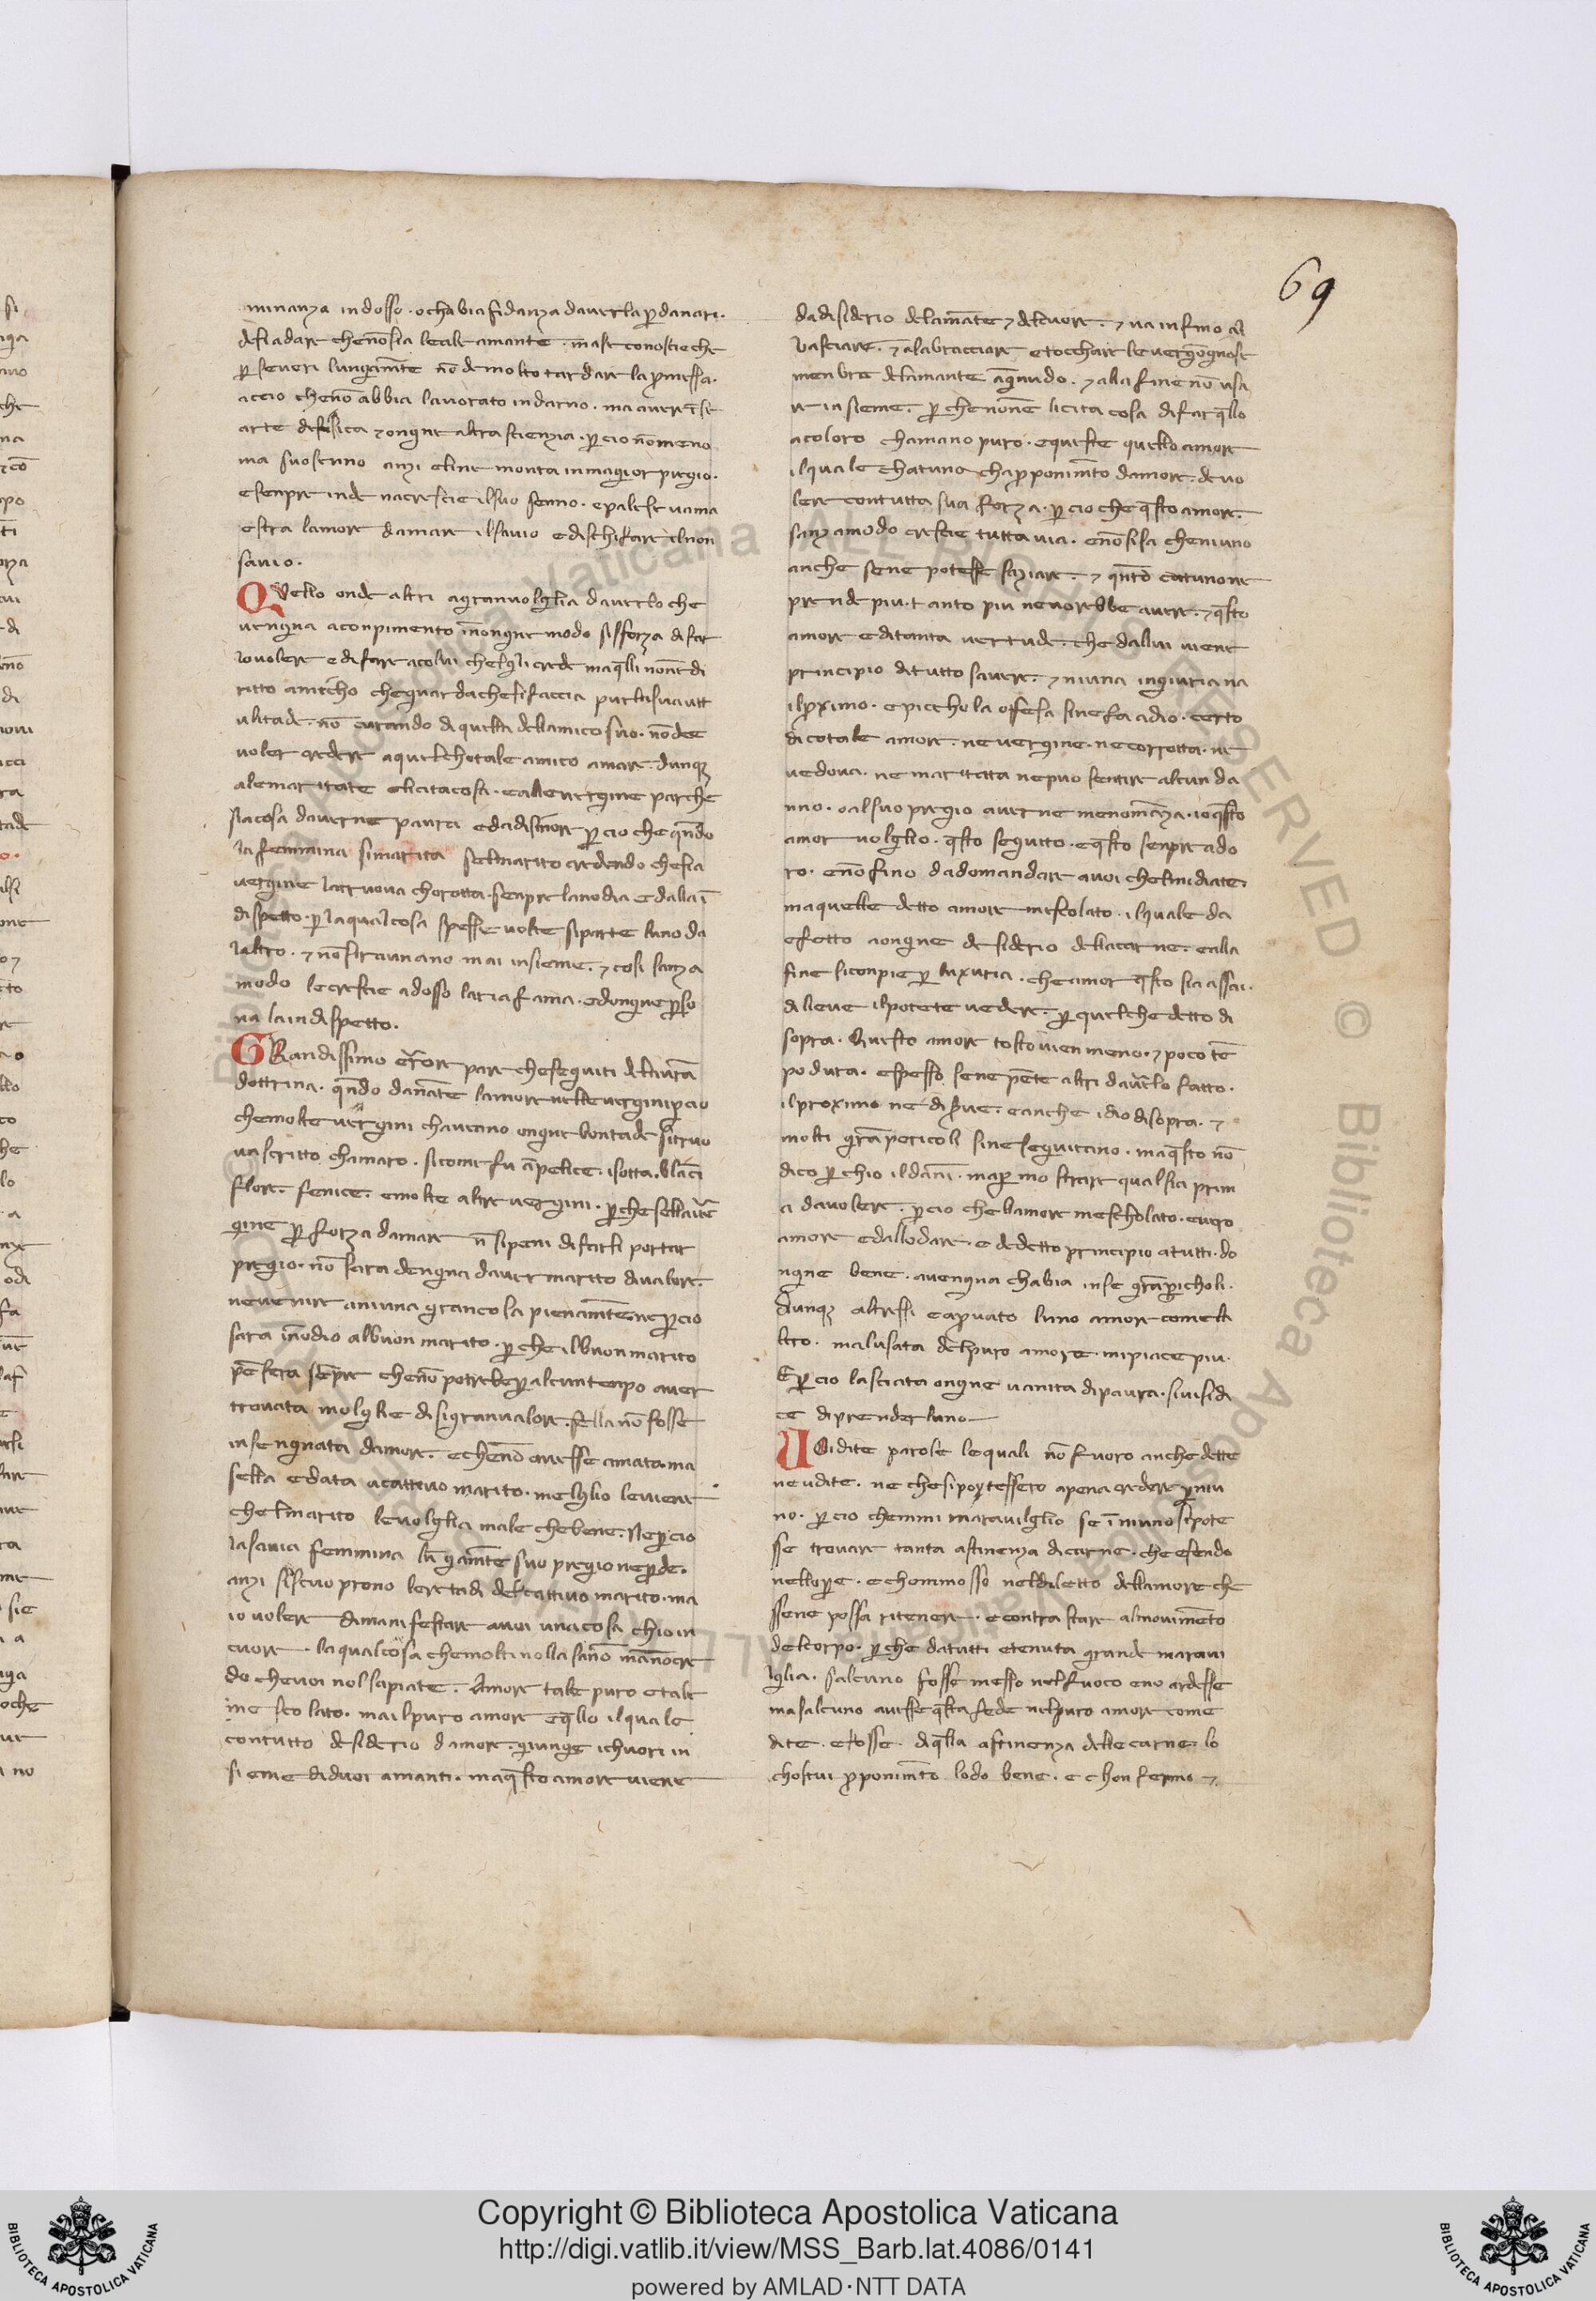 69
minanza indosso · ochabia fidanza daverla p̱ danari ·
desi adare chenōsia leale amante · mase conoscie che
p̱ severi lungam̄te nō de molto tardare la p̱messa ·
accio chenō abbia lavorato indarno · ma avere ī se
arte di fisica ⁊ ongne altra scienzia · p̱ cio nō meno
ma suo senno anzi eline monta inmagior pregio ·
esenpre inde nacrescie ilsuo senno · epalese vama
estra lamore damare ilsavio edischifare ilnon
savio ·
QVello onde altri agranvolglia daverlo che
vengna aconpimento īnongne modo sisforza di far
lovolere edifare acolui chesigli crede maq̄lli nonē di
ritto amicho cheguardachesifaccia purlasuautt
ulitade · nō curando di quella dellamico suo · nō dee
voler credere aquelchotale amico amare · dunqꝫ
alemaritate elicitacosa · eallevergine parche
sia cosa daverne paura edadisinore p̱ cio che qn̄do
la femmina simarita selmarito credendo chesia
vergine latruova chorotta · senpre lanodia edallaī
dispetto · p̱ laqualcosa spesse volte siparte luno da
laltro · ⁊ nō straunano mai insieme · ⁊ cosi sanza
modo le crescie adosso lariafama · edongne p̱so
na laindispetto ·
GRandissimo errore pare cheseguiti delavr̄a
dottrina · qn̄do danāte lamore velle vergini p̱ cio
chemolte vergini chaveano ongne bontade sitruo
va scritto chamaro · sicome fu āpelice · isotta · blāci
flore · fenice · emolte altre vergini · p̱ che sellaver
gine p̱ forza damare n̄ sipeni di farsi portar
pregio · nō sara dengna daver marito divalore
nevenire aniuna gran cosa pienam̄te nep̱ cio
sara īnodio albuon marito · p̱ che ilbuonmarito
pēsera senpre chenō potrebe p̱ alcun tenpo aver
trovata molglie disigranvalore · sella nō fosse
insengnata damore · echenō avesse amata · ma
sella edata acattivo marito · melglio leviene
chelmarito levolglia male chebene · Nep̱ cio
lasavia femmina lūgam̄te suo pregio nep̱de ·
anzi siscuoprono lereetadi delcattivo marito · ma
io volere dimanifestar avoi una cosa chio in
cuore · laqualcosa chemolti nolla sāno mānōcre
do chevoi nol sapiate · Amore tale puro etale
mescolato · mailpuro amore eq̄llo ilquale
contutto desiderio damore giunge ichuori in
sieme diduoi amanti · maq̄sto amore viene
dadisiderio delamāte ⁊ delcuore · ⁊ va insino al
basciare · ⁊ alabracciare etocchare le vergōgnose
menbra delamante āgnudo · ⁊ alla fine nō usa
re insieme · p̱ che nonne licita cosa di far q̄llo
acoloro chamano puro · equeste quello amor
ilquale chatuno chap̱ponim̄to damore · de vo
lere contutta sua forza · p̱ cio che q̄sto amore
sanzamodo crescie tuttavia · enō sisa cheniuno
anche sene potesse saziare · ⁊ qn̄to catunone
prende piu · tanto piu nevorebbe avere · ⁊ q̄sto
amore editanta vertude · che dallui viene
principio ditutto savere · ⁊ niuna ingiuria na
ilp̱ximo · epicchola offesa sinefa adio · certo
di cotale amore · nevergine · ne corrotta · ne
vedova · ne maritata nepuo sentire alcun da
nno · oalsuo pregio averne menomāza · io q̄sto
amor volglio · q̄sto seguito · eq̄sto senpre ado
ro · enō fino dadomandare avoi chelmidiate
maquelle detto amore mescolato · ilquale da
efetto aongne desiderio dellacarne · ealla
fine siconpie p̱ luxuria · cheamor q̄sto sia assai ·
dilieve ilpotete vedere · p̱ quelche detto di
sopra · Questo amore tosto vien meno · ⁊ poco tē
po dura · espesso sene pēte altri daverlo fatto ·
ilproximo ne di grave · eanche idio disopra · ⁊
molti grā pericoli sine seguitano · maq̄sto nō
dico p̱ chio ildāni · map̱ mostrare qual sia prim
a davolere · p̱ cio che lamore mescholato · evero
amore edallodare · e dedetto principio atutti · do
ngne bene · avengna chabia inse grā p̱icholi ·
dunqꝫ altressi eap̱vato luno amor comela
ltro · malusata delpuro amore mipiace piu ·
Ep̱ cio lasciata ongne vanita dipaura · sivisidi
ce diprender luno
UDidite parole lequali nō fuoro anche dette
neudite · ne chesipotessero apena credere p̱ niu
no · p̱ cio chemmi maravilglio se ī niuno sipote
sse trovare tanta astinenza di carne · che esendo
nellop̱e · echommosso neldiletto dellamore che
ssene possa ritenere · econtrastare almovimēto
delcorpo · p̱ che datutti etenuta grande maravi
lglia · salcuno fosse messo nel fuoco eno ardesse
masalcuno avesse q̄sta fede nelpuro amor come
dite · efosse diq̄lla astinenza delle carne · lo
chostui p̱ponim̄to lodo bene · e chonfermo ⁊
Copyright © Biblioteca Apostolica Vaticana
http://digi.vatlib.it/view/MSS_Barb.lat.4086/0141
powered by AMLAD·NTT DATA
BIBLIOTECA APOSTOLICA VATICANA
BIBLIOTECA APOSTOLICA VATICANA